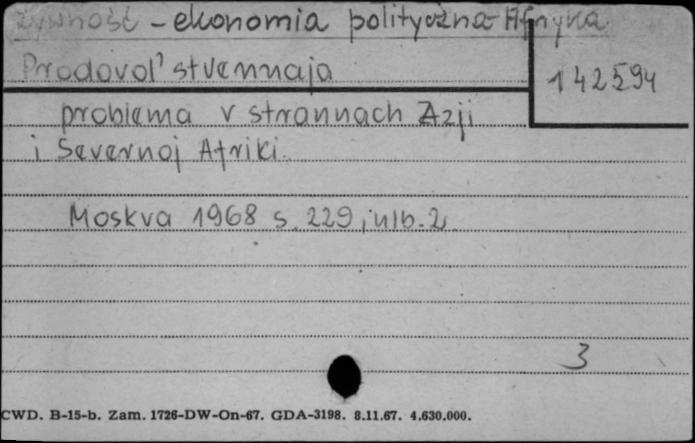 Żywność - ekonomia polityczna - Afryka
Prodovol'stvennaja
142594
problema v strannach Azji
i Severnoj Afriki.
Moskva 1968 s. 229, nlb. 2
3
CWD. B-15-b. Zam. 1726-DW-On-67. GDA-3198. 8.11.67. 4.630.000.